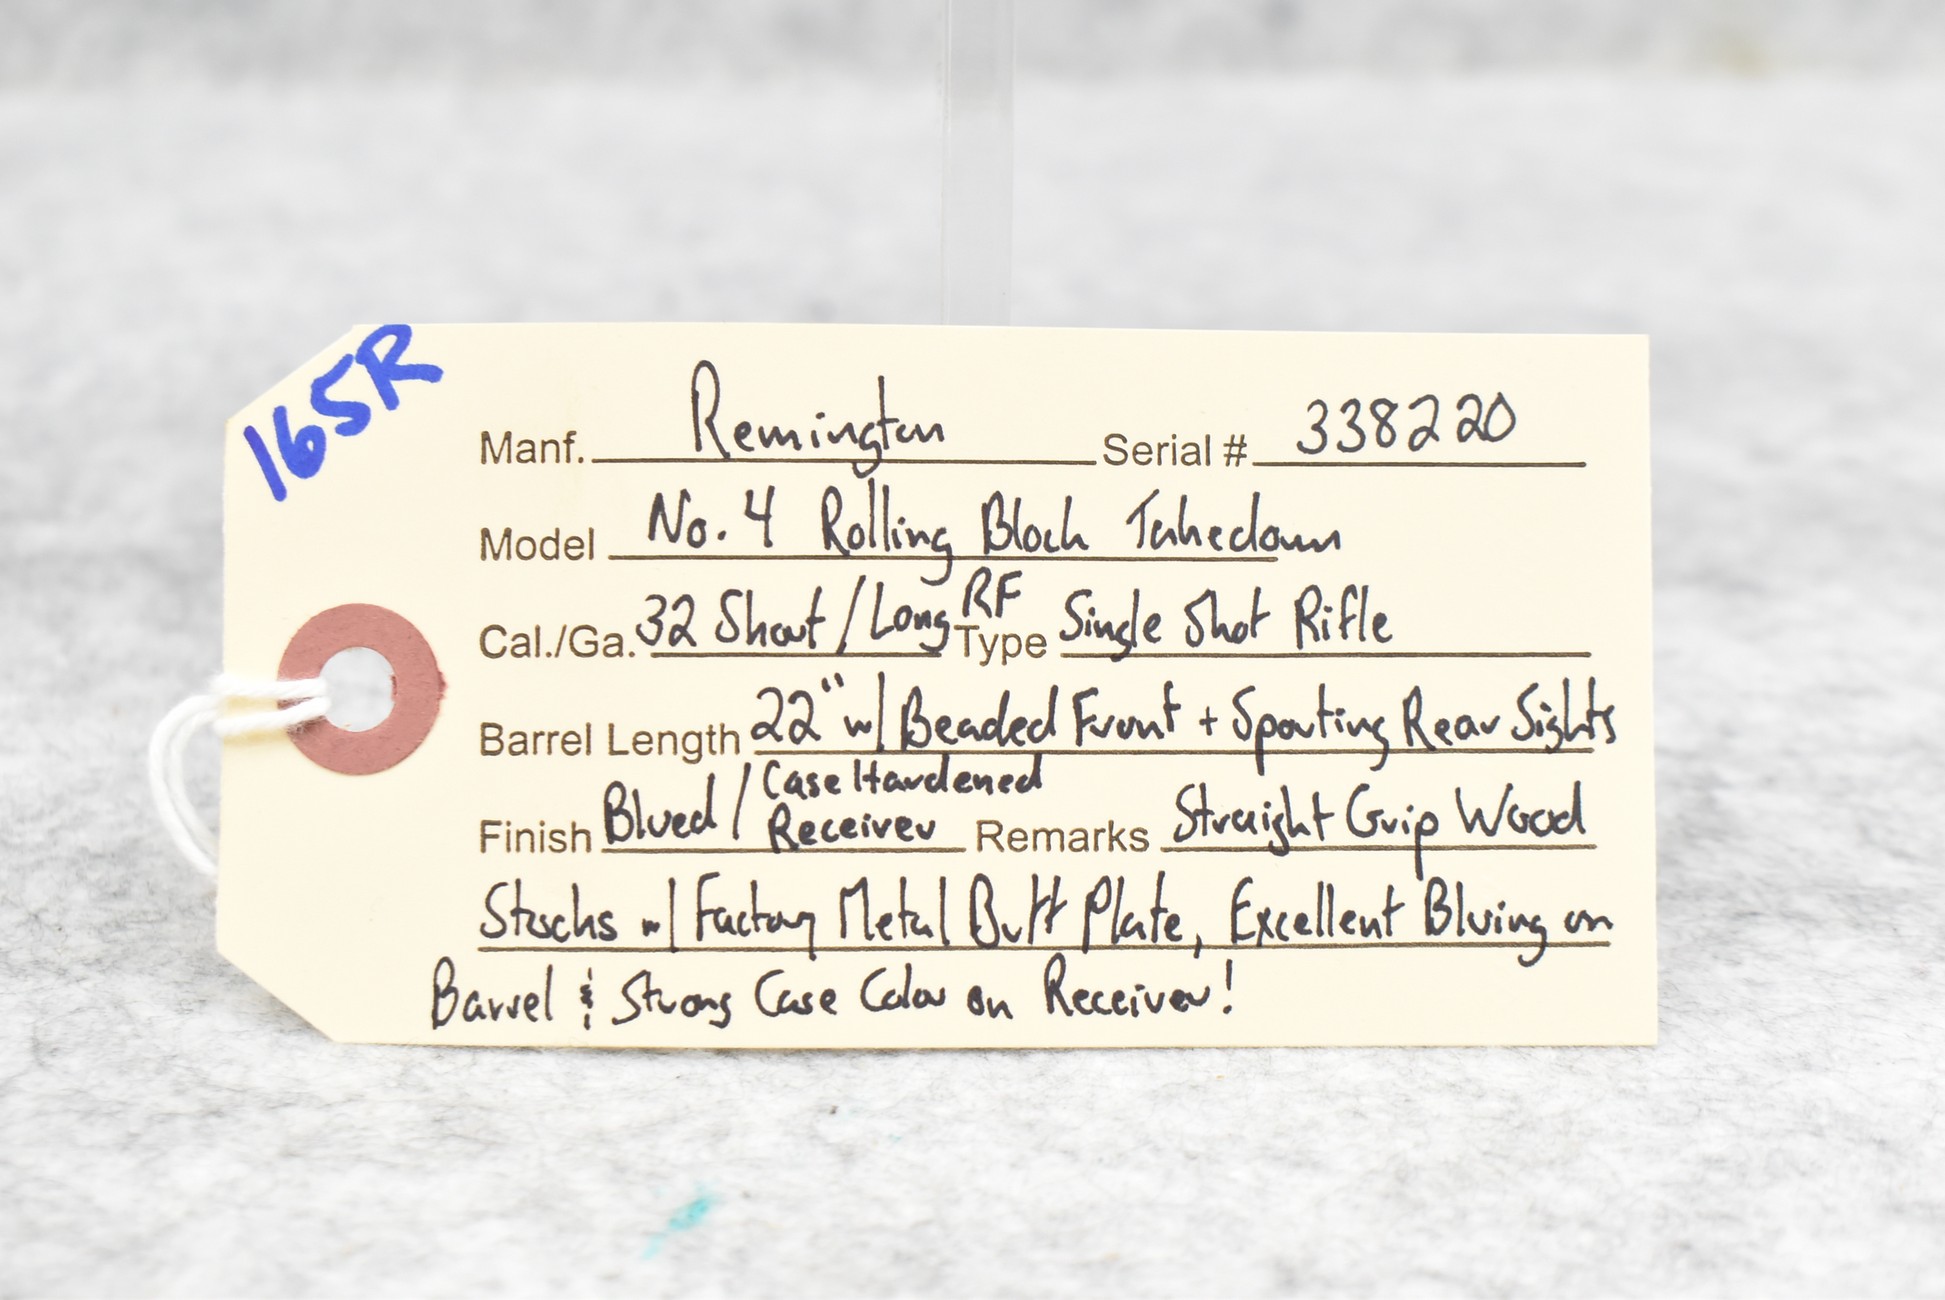 165R
Manf. Remington Serial # 338220
Model No. 4 Rolling Block Takedown
Cal./Ga. 32 Short / Long RF Type Single Shot Rifle
Barrel Length 22" w/ Beaded Front + Sporting Rear Sights
Finish Blued / Case Hardened Receiver Remarks Straight Grip Wood
Stocks w/ Factory Metal Butt Plate, Excellent Bluing on
Barrel & Strong Case Color on Receiver!